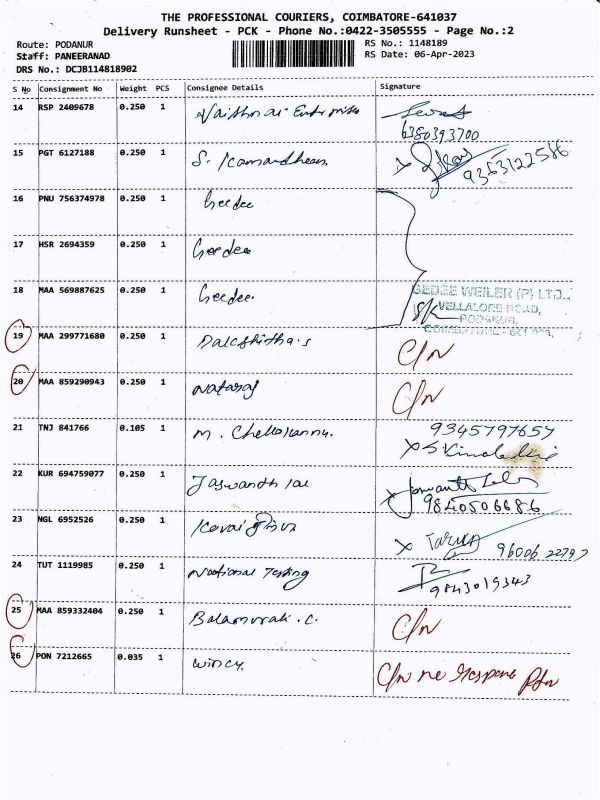 THE PROFESSIONAL COURIERS, COIMBATORE-641037
Delivery Runsheet - PCK - Phone No.:0422-3505555 - Page No.:2
Route: PODANUR RS No.: 1148189
Staff: PANEERANAD RS Date: 06-Apr-2023
DRS No.: DCJB114818902
S No Consignment No Weight PCS Consignee Details Signature
14 RSP 2409678 0.250 1
6380393700
15 PGT 6127188 0.250 1 S.
9363122586
16 PNU 756374978 0.250 1 Geedee
17 HSR 2694359 0.250 1 Geedee
18 MAA 569887625 0.250 1 Geedee.
GEDEE WEILER (P) LTD.,
VELLALORE ROAD,
PODANUR,
COIMBATORE - 641 023.
19 MAA 299771680 0.250 1 C/N
20 MAA 859290943 0.250 1 Nataraj C/N
21 TNJ 841766 0.105 1 M. 9345797657
22 KUR 694759077 0.250 1 Jaswanth lal
9840506686
23 NGL 6952526 0.250 1 Kovai
96006 22797
24 TUT 1119985 0.250 1 National Testing
9843019343
25 MAA 859332404 0.250 1 Balamurali.C. C/N
26 PON 7212665 0.035 1 Wincy C/N no